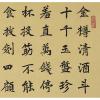 金樽清酒斗
十千玉盤珍
羞直萬錢停
杯投箸不能
食拔劍四顧